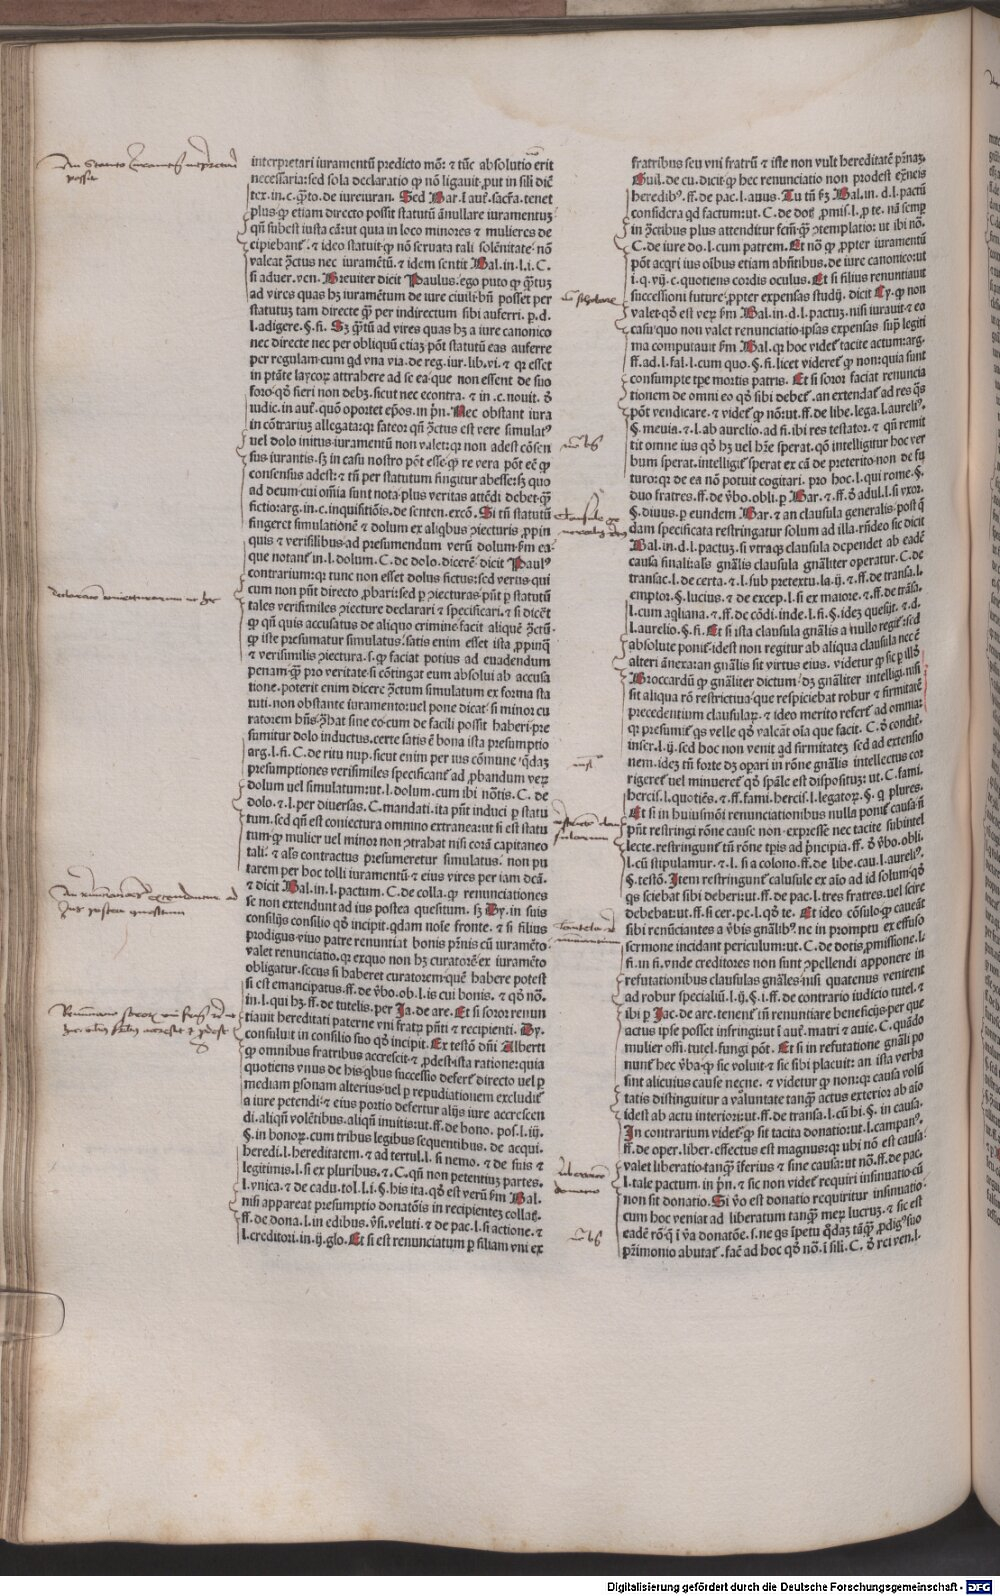 interpretari iuramentū predicto mō: ⁊ tūc absolutio erit
necessaria: sed sola declaratio ꝙ nō ligauit, put in sili dic̄
tex. in. c. q̄to. de iureiuran. Sed Bar. ī auc̄. sacra. tenet
plus ꝙ etiam directo possit statutū ānullare iuramentuz
qn̄ subest iusta cā: ut quia in loco minores ⁊ mulieres de
cipiebant̄. ⁊ ideo statuit ꝙ nō seruata tali solēnitate nō
valeat ꝯctus nec iuramētū. ⁊ idem sentit Bal. in. l. i. C.
si aduer. ven. Breuiter dicit Paulus. ego puto ꝙ q̄tuz
ad vires quas hz iuramētum de iure ciuili bn̄ posset per
statutuz tam directe q̄ per indirectum sibi auferri. p. d.
l. adigere. §. fi. Sz q̄tū ad vires quas hz a iure canonico
nec directe nec per obliquū etiaz pōt statutū eas auferre
per regulam cum qd vna via. de reg. iur. lib. vi. ⁊ qr esset
in ptāte laycoꝝ attrahere ad se ea que non essent de suo
foro qd fieri non debz. sicut nec econtra. ⁊ in. c. nouit. d
iudic. in auc̄. quō oportet ep̄os. in prin. Nec obstant iura
in cōtrariuz allegata: qr fateor qn̄ ꝯctus est vere simulat⁹
uel dolo initus iuramentū non valet: qr non adest cōsen
sus iurantis. sz in casu nostro pōt esse ꝙ re vera pōt eē ꝙ
consensus adest: ⁊ tn̄ per statutum fingitur abesse: sz quo
ad deum cui om̄ia sunt nota plus veritas attēdi debet q̄
fictio: arg. in. c. inquisitiōis. de senten. excō. Si tn̄ statutū
fingeret simulationē ⁊ dolum ex aliqbus ꝯiecturis, ppin
quis ⁊ verisilibus ad presumendum verū dolum bm̄ ea
que notant̄ in. l. dolum. C. de dolo. dicerē. dicit Paul⁹
contrarium: qr tunc non esset dolus fictus: sed verus qui
cum non pn̄t directo, pbari: sed p ꝯiecturas pn̄t p statutū
tales verisimiles ꝯiecture declarari ⁊ specificari. ⁊ si dicet̄
ꝙ qn̄ quis accusatus de aliquo crimine facit aliquē ꝯctū
ꝙ iste presumatur simulatus: satis enim esset ista, ppinq̄
⁊ verisimilis ꝯiectura. s. ꝙ faciat potius ad euadendum
penam q̄ pro veritate si cōtingat eum absolui ab accusa
tione. poterit enim dicere ꝯctum simulatum ex forma sta
tuti. non obstante iuramento: uel pone dicat si minor cu
ratorem bn̄s ꝯbat sine eo cum de facili possit haberi pre
sumitur dolo inductus. certe satis ē bona ista presumptio
arg. l. fi. C. de ritu nup. sicut enim per ius cōmune qdaz
presumptiones verisimiles specificant̄ ad, pbandum veꝝ
dolum uel simulatum: ut. l. dolum. cum ibi nōtis. C. de
dolo. ⁊. l. per diuersas. C. mandati. ita pn̄t induci p statu
tum. scd qn̄ est coniectura omnino extranea: ut si est statu
tum ꝙ mulier uel minor non ꝯtrahat nisi corā capitaneo
tali: ⁊ als contractus presumeretur simulatus: non pu
tarem per hoc tolli iuramentū ⁊ eius vires per iam dcā.
⁊ dicit Bal. in. l. pactum. C. de colla. ꝙ renunciationes
se non extendunt ad ius postea quesitum. sz Dy. in suis
consilijs consilio qd incipit. qdam nole fronte. ⁊ si filius
prodigus viuo patre renuntiat bonis pr̄nis cū iuramēto
valet renunciatio. qr ex quo non hz curatorē ex iuramēto
obligatur. secus si haberet curatorem quē habere potest
si est emancipatus. ff. de v̄bo. ob. l. is cui bonis. ⁊ qd nō.
in. l. qui hz. ff. de tutelis. per Ja. de are. Et si soror renun
tiauit hereditati paterne vni fratꝝ pn̄ti ⁊ recipienti. Dy.
consuluit in consilio suo qd incipit. Ex testō dn̄i Alberti
ꝙ omnibus fratribus accrescit ⁊, pdest ista ratione: quia
quotiens vnus de his qbus successio defert̄ directo uel p
mediam psonam alterius uel p repudiationem excludit̄
a iure petendi ⁊ eius portio defertur alijs iure accrescen
di. aliqn̄ volētibus. aliqn̄ inuitis: ut. ff. de bono. pos. l. iij.
§. in bonoꝝ. cum tribus legibus sequentibus. de acqui.
heredi. l. hereditatem. ⁊ ad tertul. l. si nemo. ⁊ de suis ⁊
legitimis. l. si ex pluribus. ⁊. C. qn̄ non petentiuz partes.
l. vnica. ⁊ de cadu. tol. l. i. §. his ita. qd est verū bm̄ Bal.
nisi appareat presumptio donatōis in recipientez collat̄.
ff. de dona. l. in edibus. v̄si. veluti. ⁊ de pac. l. si actione. ⁊
l. creditori. in. ij. glo. Et si est renunciatum p filiam vni ex
fratribus seu vni fratrū ⁊ iste non vult hereditatē pr̄naz.
Guil. de cu. dicit ꝙ hec renunciatio non prodest extraneis
heredib⁹. ff. de pac. l. auus. Tu tn̄ bz Bal. in. d. l. pactū
considera qd factum: ut. C. de dot̄, pmis. l. p te. nā semp
in ꝯctibus plus attenditur fcm̄ q̄ ꝯtemplatio: ut ibi nō.
C. de iure do. l. cum patrem. Et nō ꝙ, ppter iuramentū
pōt acqri ius oib̄us etiam abn̄tibus. de iure canonico: ut
i. q. vij. c. quotiens cordis oculus. Et si filius renuntiauit
successioni future, ppter expensas studij. dicit Cy. ꝙ non
valet. qd est veꝝ bm̄ Bal. in. d. l. pactuz. nisi iurauit ⁊ eo
casu quo non valet renunciatio ipsas expensas sup̄ legiti
ma computauit bm̄ Bal. qr hoc videt̄ tacite actum: arg.
ff. ad. l. fal. l. cum quo. §. fi. licet videret̄ ꝙ non: quia sunt
consumpte tpe mortis patris. Et si soror faciat renuncia
tionem de omni eo qd sibi debet̄. an extendat̄ ad res q̄s
pōt vendicare. ⁊ videt̄ ꝙ nō: ut. ff. de libe. lega. l. aureli⁹.
§. meuia. ⁊. l. ab aurelio. ad fi. ibi res testator. ⁊ qn̄ remit
tit omne ius qd hz uel hr̄e sperat. qd intelligitur hoc ver
bum sperat. intelligit̄ sperat ex cā de preterito non de fu
turo: qr de ea nō potuit cogitari. pro hoc. l. qui rome. §.
duo fratres. ff. de v̄bo. obli. p Bar. ⁊. ff. d adul. l. si vxor.
§. diuus. p eundem Bar. ⁊ an clausula generalis post q̄
dam specificata restringatur solum ad illa. rn̄deo sic dicit
Bal. in. d. l. pactuz. si vtraqz clausula dependet ab eadē
causa finali: als gn̄alis clausula gn̄aliter operatur. C. de
transac. l. de certa. ⁊. l. sub pretextu. la. ij. ⁊. ff. de transa. l.
emptor. §. lucius. ⁊ de excep. l. si ex maiore. ⁊. ff. de trāsa.
l. cum aqliana. ⁊. ff. de cōdi. inde. l. fi. §. idez quesijt. ⁊. d.
l. aurelio. §. fi. Et si ista clausula gn̄alis a nullo regit̄: sed
absolute ponit̄ idest non regitur ab aliqua clausula nec ē
alteri ānexa: an gn̄alis sit virtus eius. videtur ꝙ sic p illd
Broccardū ꝙ gn̄aliter dictum. dz gn̄aliter intelligi. nisi
sit aliqua rō restrictiua que respiciebat robur ⁊ firmitatē
precedentium clausulaꝝ. ⁊ ideo merito refert̄ ad omnia:
qr presumit̄ qs velle qd valeāt oia que facit. C. d condit̄.
inser. l. ij. sed hoc non venit ad firmitatez sed ad extensio
nem. idez tn̄ forte dz opari in rōne gn̄alis intellectus cor
rigeret̄ uel minueret̄ qd sp̄ale est dispositus: ut. C. fami.
hercis. l. quotiēs. ⁊. ff. fami. hercis. l. legatoꝝ. §. q plures.
Et si in huiusmōi renunciationibus nulla ponit̄ causa n̄
pn̄t restringi rōne cause non expresse nec tacite subintel
lecte. restringunt̄ tn̄ rōne tpis ad prīncipia. ff. d v̄bo. obli.
l. cū stipulamur. ⁊. l. si a colono. ff. de libe. cau. l. aureli⁹.
§. testō. Item restringunt̄ calusule ex aīo ad id solum qd
qs sciebat sibi deberi: ut. ff. de pac. l. tres fratres. uel scire
debebat: ut. ff. si cer. pc. l. qd te. Et ideo cōsulo ꝙ caueāt
sibi renūciantes a v̄bis gn̄alib⁹ ne in promptu ex effuso
sermone incidant periculum: ut. C. de dotis, pmissione. l.
fi. in fi. vnde creditores non sunt ꝯpellendi apponere in
refutationibus clausulas gn̄ales nisi quatenus venirent
ad robur specialiū. l. ij. §. i. ff. de contrario iudicio tutel. ⁊
ibi p Jac. de are. tenent̄ tn̄ renuntiare beneficijs per que
actus ipse posset infringi: ut ī auc̄. matri ⁊ auie. C. quādo
mulier offi. tutel. fungi pōt. Et si in refutatione gn̄ali po
nunt̄ hec v̄ba ꝙ sic voluit ⁊ sic sibi placuit: an ista verba
sint alicuius cause necne. ⁊ videtur ꝙ non: qr causa volū
tatis distinguitur a vāluntate tanq̄ actus exterior ab aīo
idest ab actu interiori: ut. ff. de transa. l. cū hi. §. in causa.
In contrarium videt̄ ꝙ sit tacita donatio: ut. l. campan⁹.
ff. de oper. liber. effectus est magnus: qr ubi nō est causa
valet liberatio tanq̄ īferius ⁊ sine causa: ut nō. ff. de pac.
l. tale pactum. in prīn. ⁊ sic non videt̄ requiri insinuatio cū
non sit donatio. Si v̄o est donatio requiritur insinuatio
cum hoc veniat ad liberatum tanq̄ meꝝ lucruz. ⁊ sic est
eadē rō q̄ ī v̄a donatōe. s. ne qs īpetu qdaz tāq̄, pdig⁹ suo
pr̄imonio abutat̄. fac̄ ad hoc qd nō. ī sili. C. d rei ven. l.
Digitalisierung gefördert durch die Deutsche Forschungsgemeinschaft - DFG